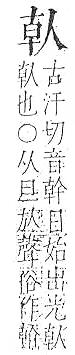 倝
古汗切音幹日始出光倝
倝也○从旦㫃聲俗作